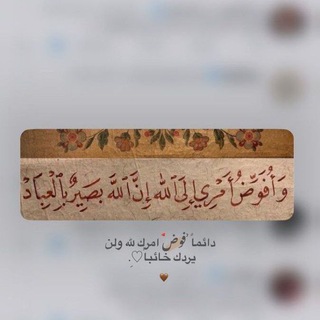 وَأُفَوِّضُ أَمْرِي إِلَى ٱللَّهِ إِنَّ ٱللَّهَ بَصِيرٌۢ بِٱلْعِبَادْ
دائماً "فوض" امرك لله ولن
يردك خائبا♡.